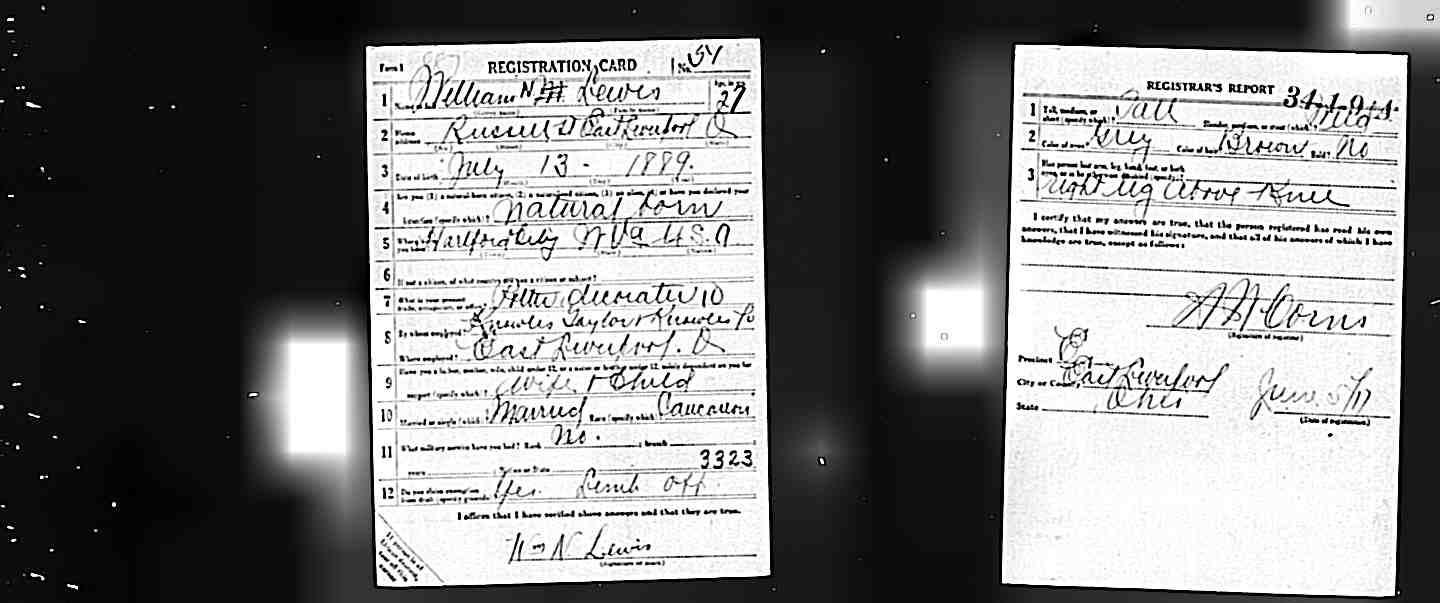 Form 1 REGISTRATION CARD No. 54
1 William N. Lewis Age, in yrs. 27
2 Home address Russell St East Liverpool O
3 Date of birth July 13 - 1889.
Are you (1) a natural-born citizen, (2) a naturalized citizen, (3) an alien, (4) or have you declared your
4 intention (specify which)? natural born
5 Where were you born? Hartford City W Va U.S.A
6 If not a citizen, of what country are you a citizen or subject?
7 What is your present trade, occupation, or office? decorater 10
8 By whom employed? Knowles Taylor & Knowles Co
Where employed? East Liverpool. O
9 Have you a father, mother, wife, child under 12, or a sister or brother under 12, solely dependent on you for
support (specify which)? Wife & Child
10 Married or single (which)? Married Race (specify which)? Caucasian
11 What military service have you had? Rank No. ; branch
years ; Nation or State 3323
12 Do you claim exemption from draft (specify grounds)? Yes. Limb off
I affirm that I have verified above answers and that they are true.
Wm N Lewis
(Signature or mark)
REGISTRAR'S REPORT
1 Tall, medium, or short (specify which)? Tall Slender, medium, or stout (which)? Med
2 Color of eyes? Grey Color of hair? Brown Bald? No
Has person lost arm, leg, hand, foot, or both
3 eyes, or is he otherwise disabled (specify)?
right leg above Knee
I certify that my answers are true, that the person registered has read his own
answers, that I have witnessed his signature, and that all of his answers of which I have
knowledge are true, except as follows:
(Signature of registrar)
Precinct E
City or County East Liverpool
State Ohio June 5/17
(Date of registration)